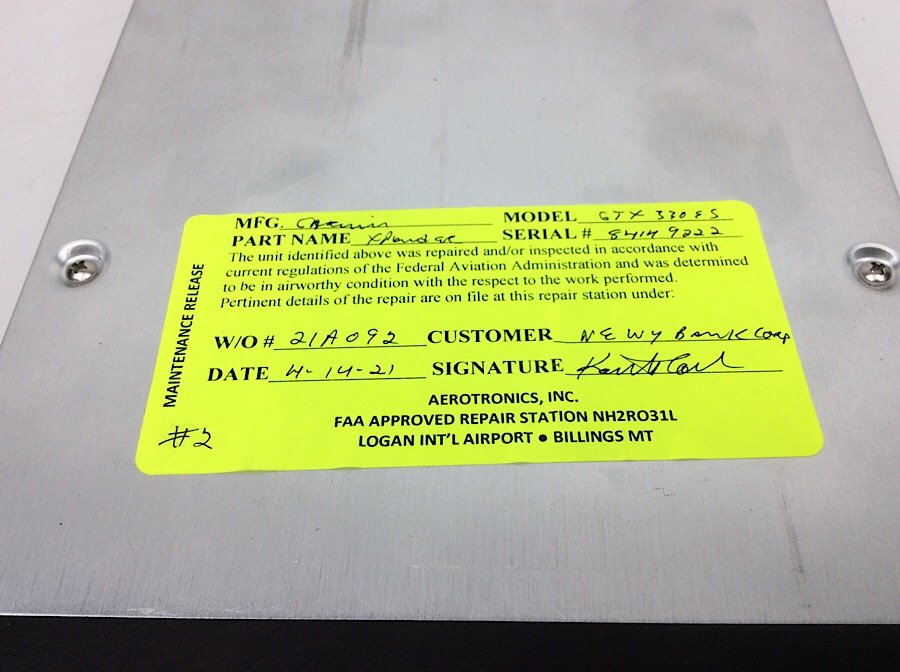 MFG. Garmin MODEL GTX 330ES
PART NAME Xponder SERIAL # 84149222
The unit identified above was repaired and/or inspected in accordance with
current regulations of the Federal Aviation Administration and was determined
to be in airworthy condition with the respect to the work performed.
Pertinent details of the repair are on file at this repair station under:
W/O # 21A092 CUSTOMER NE WY Bank Corp
DATE 4-14-21 SIGNATURE
AEROTRONICS, INC.
FAA APPROVED REPAIR STATION NH2RO31L
LOGAN INT'L AIRPORT ● BILLINGS MT
MAINTENANCE RELEASE
#2